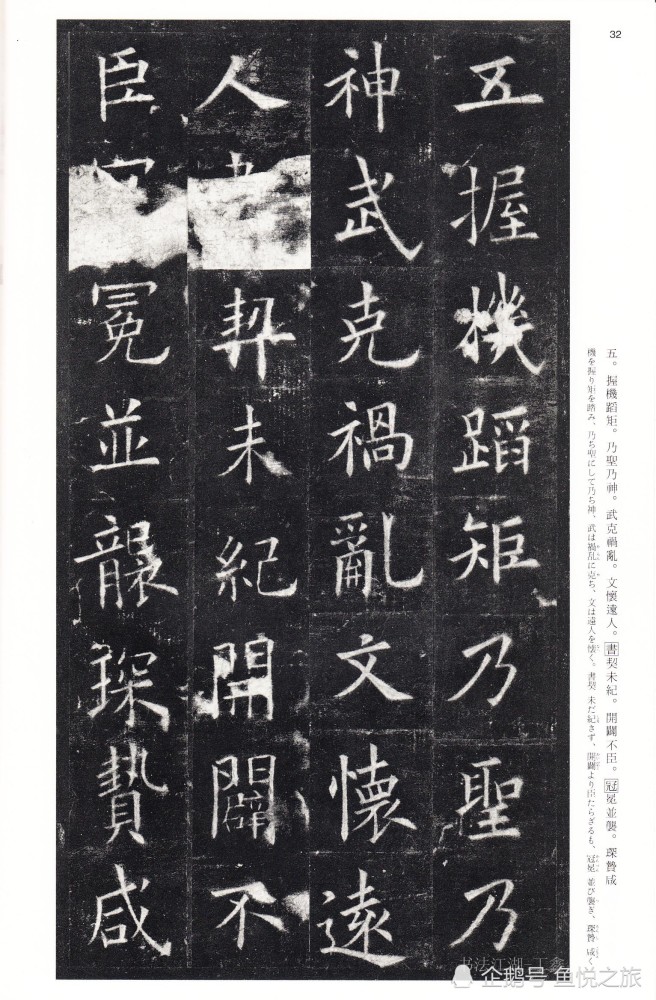 32
五握機蹈矩乃聖乃
神武克禍亂文懷遠
人契未紀開闢不
臣冕並襲琛贄咸
五。握機蹈矩。乃聖乃神。武克禍亂。文懷遠人。書契未紀。開闢不臣。冠冕並襲。琛贄咸
機を握り矩を蹈み、乃ち聖にして乃ち神、武は禍乱に克ち、文は遠人を懐く。書契未だ紀さず、開闢より臣たらざるも、冠冕並び襲ぎ、琛贄咸く
书法江湖
企鹅号 鱼悦之旅